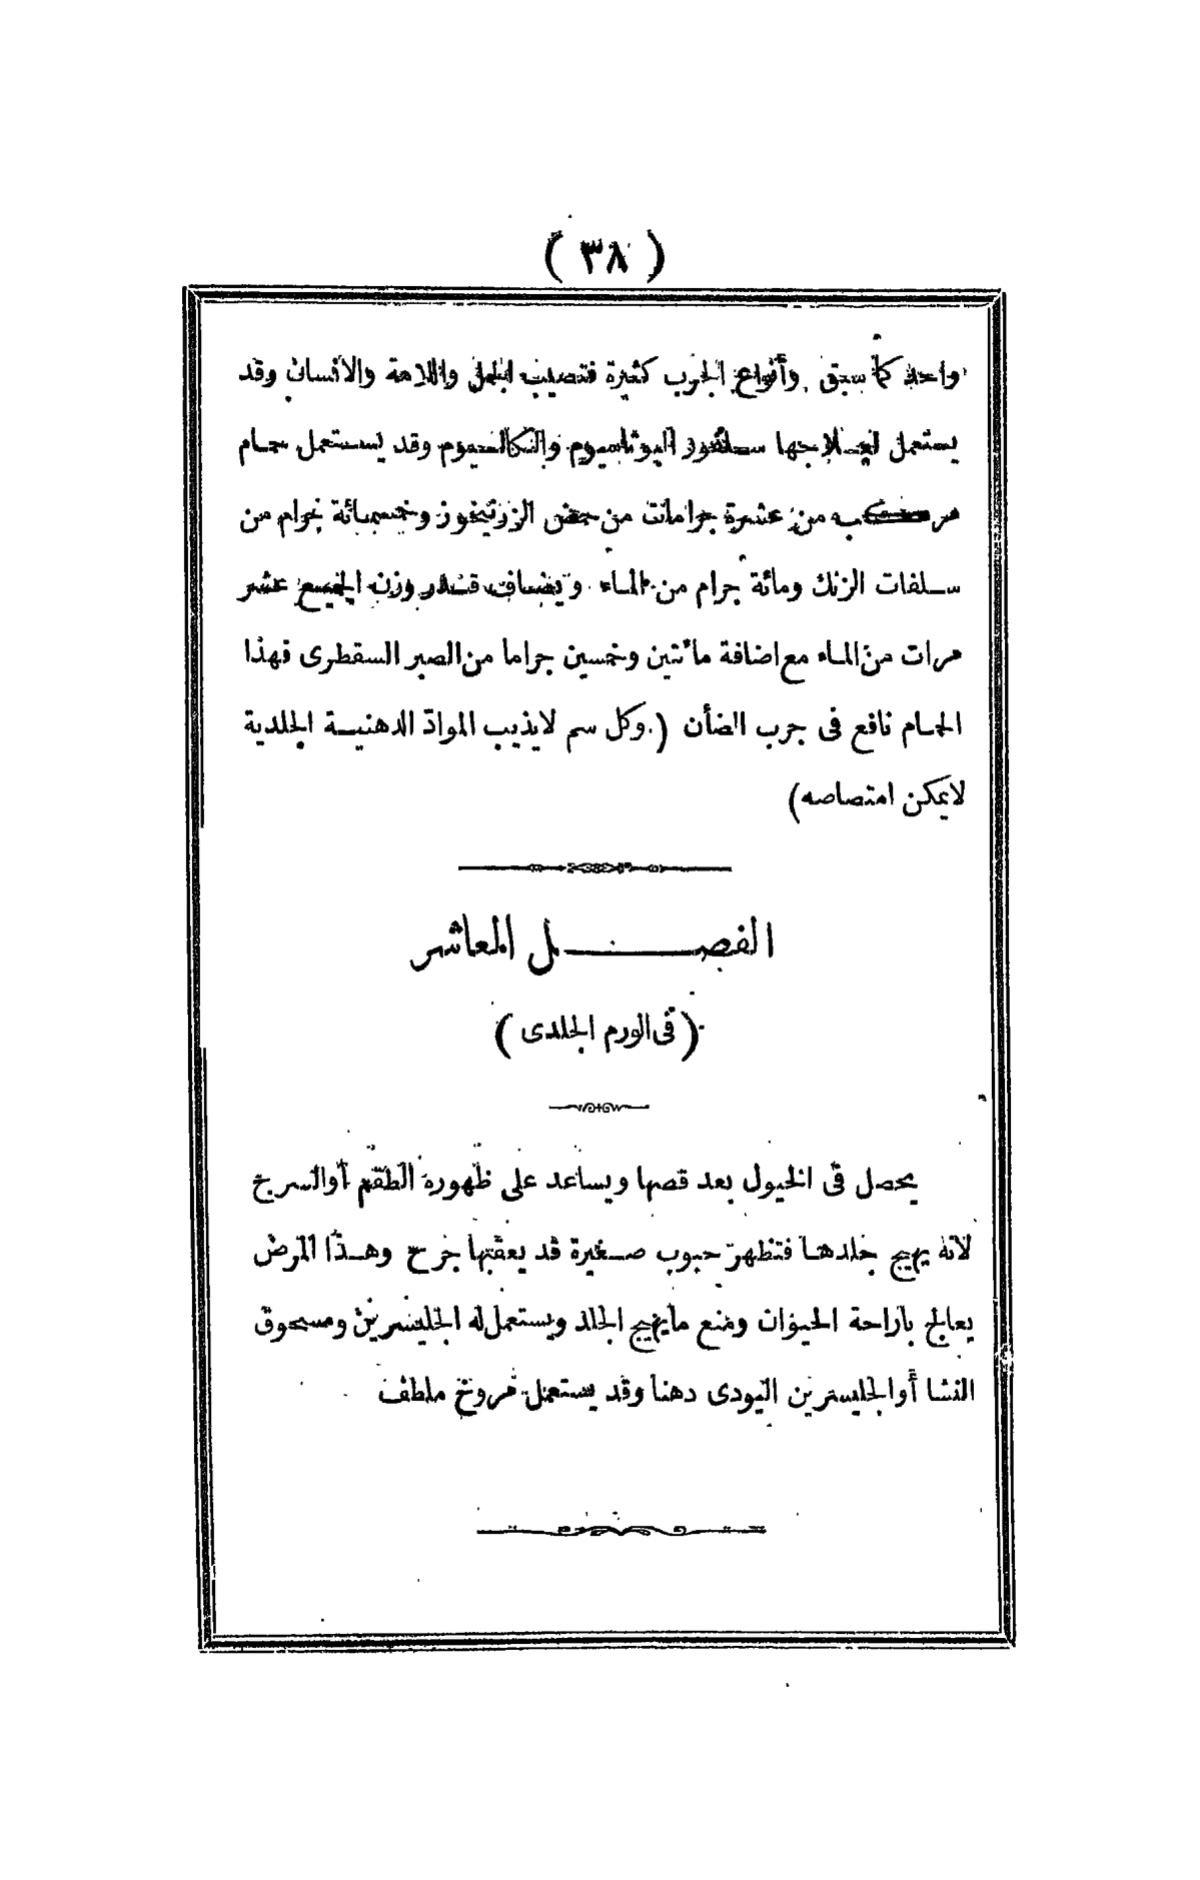 ( ٣٨ )
واحد كما سبق وأنواع الجرب كثيرة فتصيب الجمل واللامة والانسان وقد
يستعمل لعـلاجها سـلفور البوتاسيوم والكالسيوم وقد يسـتعمل حـمام
مركب من عشرة جرامات من حمض الزرنيخوز وخمسمائة جرام من
سـلفات الزنك ومائة جرام من المـاء ويضاف قـدر وزن الجميع عشر
مرات من المـاء مع اضافة مائتين وخمسين جراما من الصبر السقطرى فهذا
الحـمام نافع فى جرب الضأن (وكل سم لايذيب الموادّ الدهنيـة الجلدية
لايمكن امتصاصه)
الفصـــل العاشر
(فى الورم الجلدى)
يحصل فى الخيول بعد قصها ويساعد على ظهوره الطقم أوالسرج
لانه يهيج جلدهـا فتظهر حبوب صـغيرة قد يعقبها جرح وهـذا المرض
يعالج باراحة الحيوان ومنع مايهيج الجلد ويستعمل له الجليسرين ومسحوق
النشا أوالجليسرين اليودى دهنا وقد يستعمل مروخ ملطف